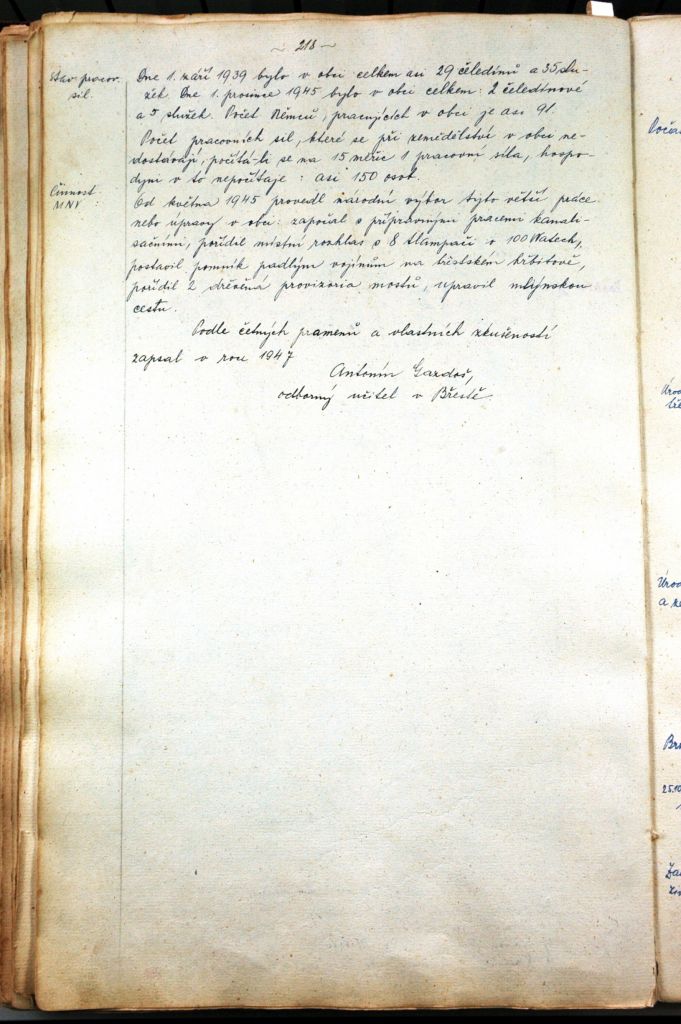 ~ 218 ~
Stav pracov.
sil.
Dne 1. září 1939 bylo v obci celkem asi 29 čeledínů a 35 slu-
žek. Dne 1. prosince 1945 bylo v obci celkem: 2 čeledínové
a 5 služek. Počet Němců, pracujících v obci je asi 91.
Počet pracovních sil, které se při zemědělství v obci ne-
dostávají, počítá-li se na 15 měřic 1 pracovní síla, hospo-
dyni v to nepočítaje: asi 150 osob.
Činnost
MNV :
Od května 1945 provedl národní výbor tyto větší práce
nebo úpravy v obci: započal s přípravnými pracemi kanali-
sačními, pořídil místní rozhlas s 8 tlampači o 100 Watech,
postavil pomník padlým vojínům na břestském hřbitově,
pořídil 2 dřevěná provizoria mostů, upravil mlýnskou
cestu.
Podle četných pramenů a vlastních zkušeností
zapsal v roce 1947
Antonín Gazdoš,
odborný učitel v Břestě.
Úrod
Úrod
25.10